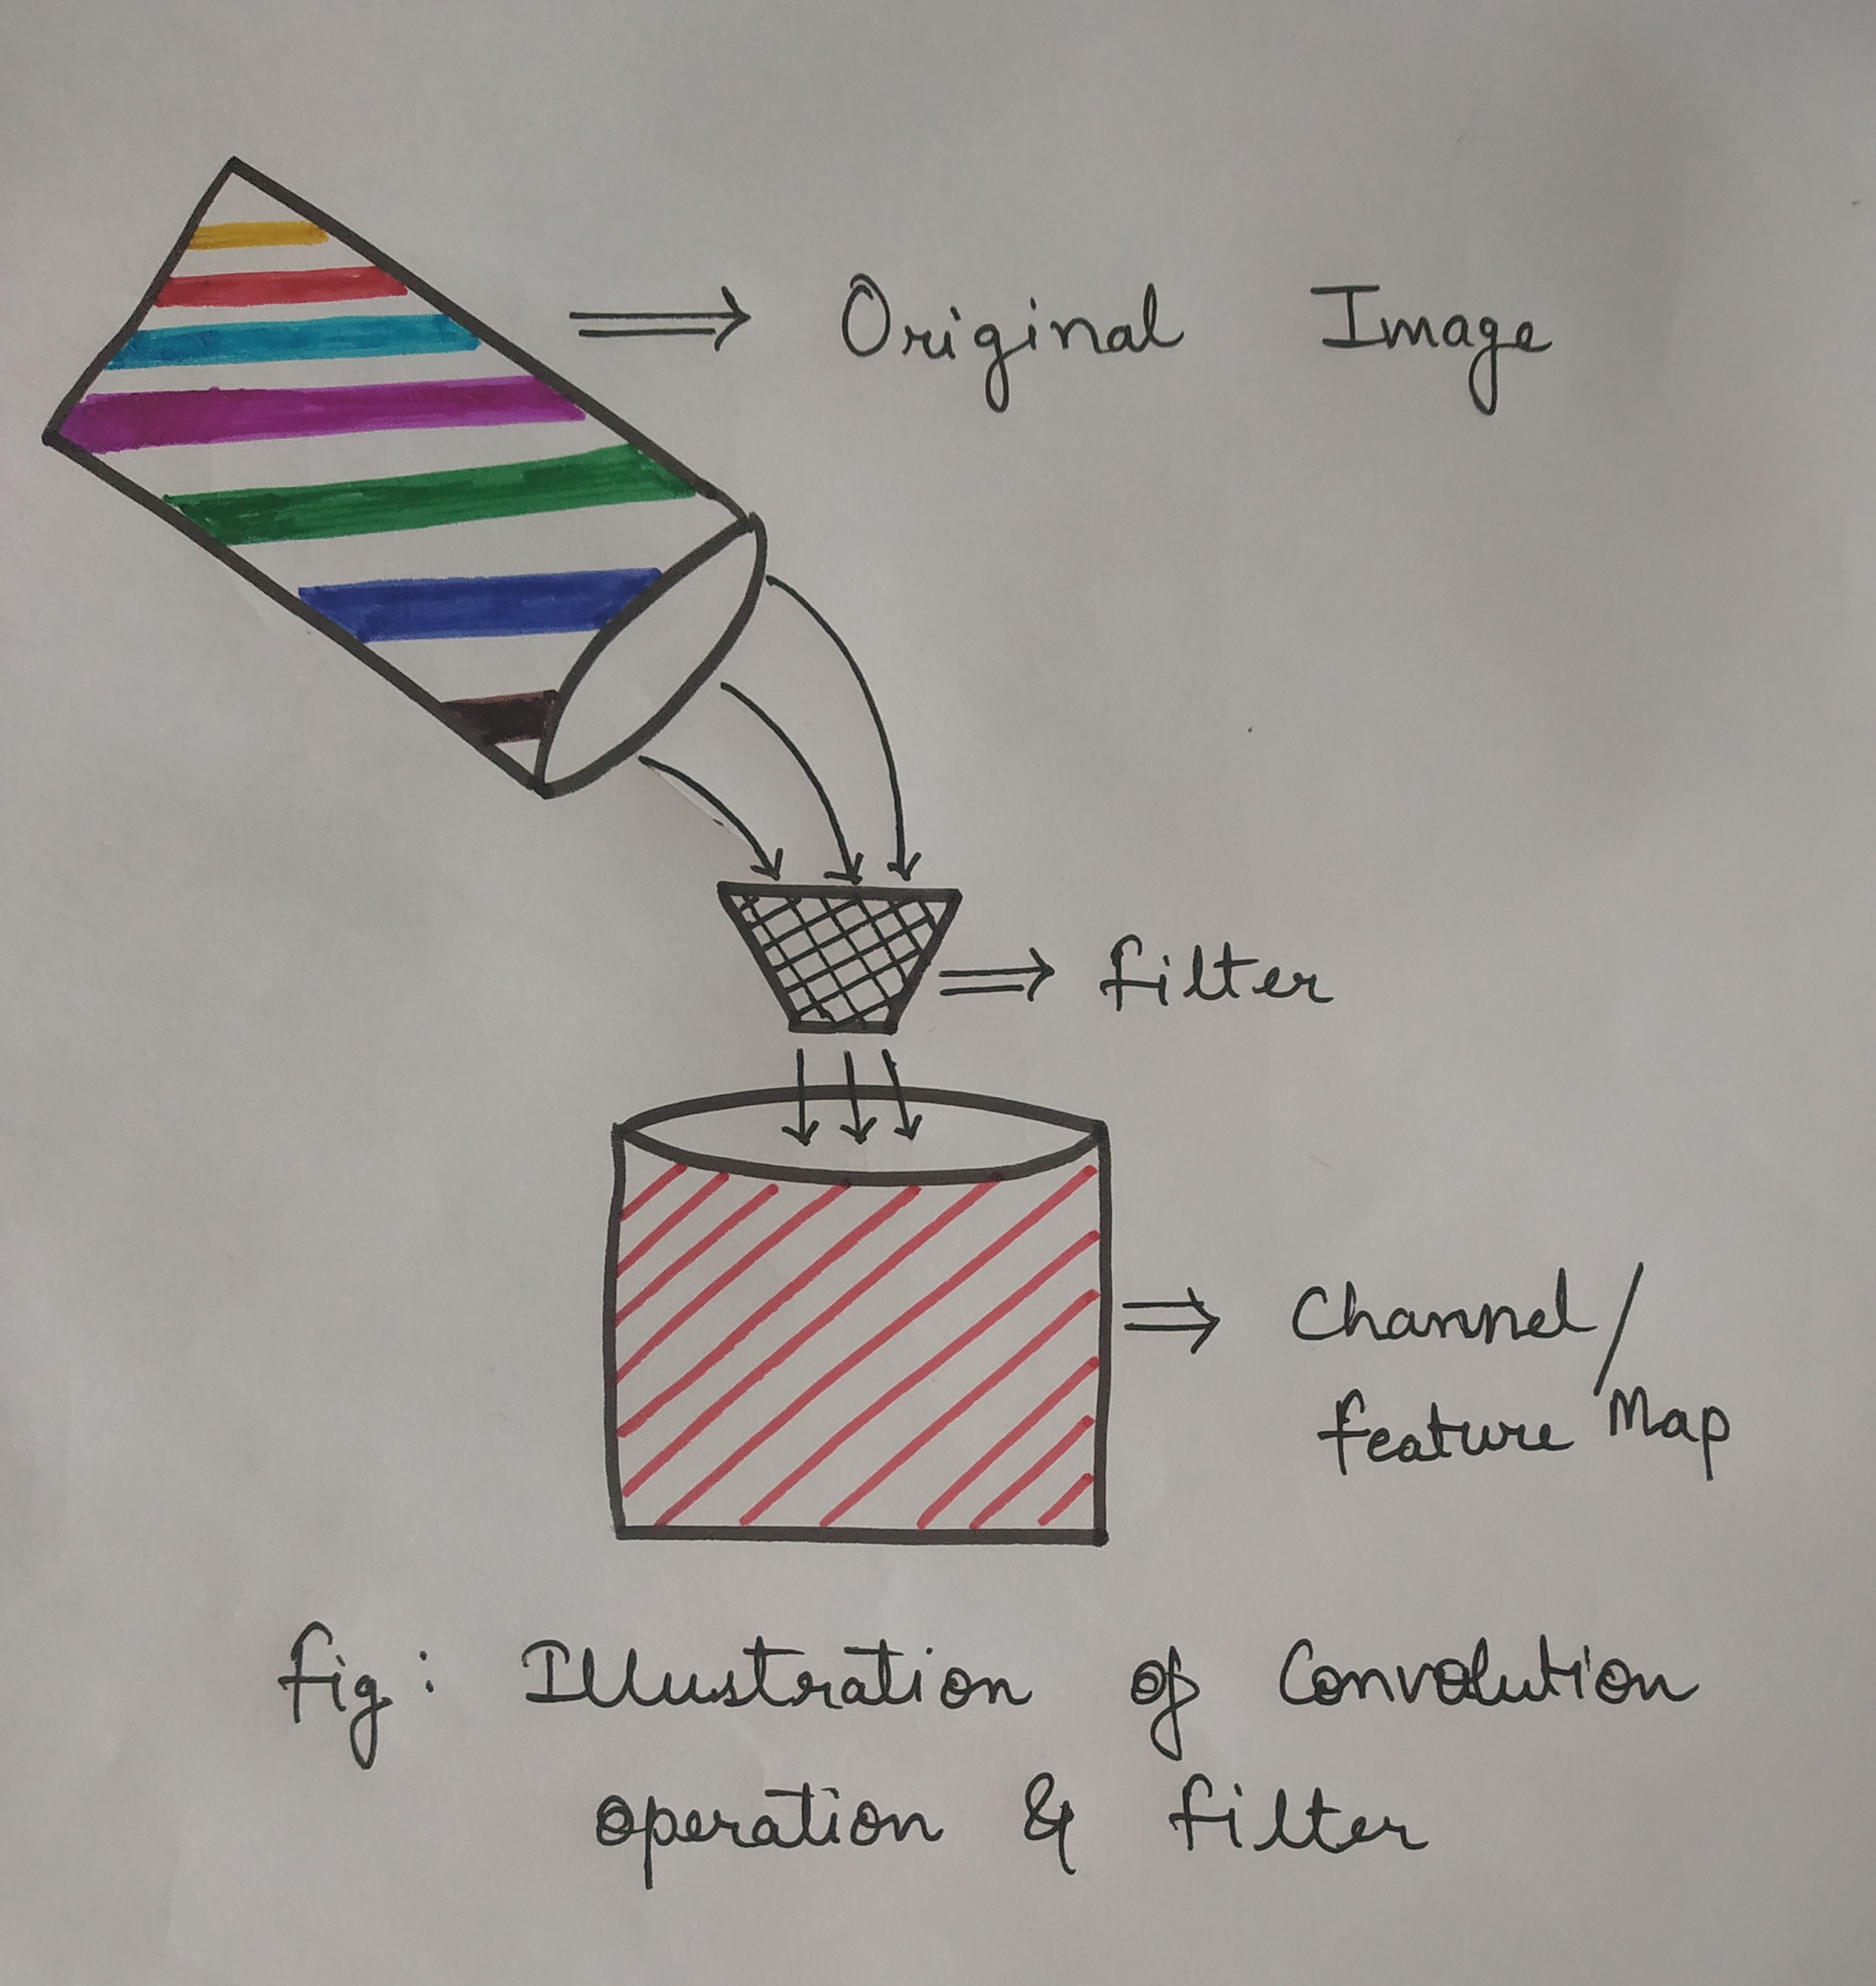 Original Image
filter
Channel/
feature Map
fig: Illustration of Convolution
operation & filter